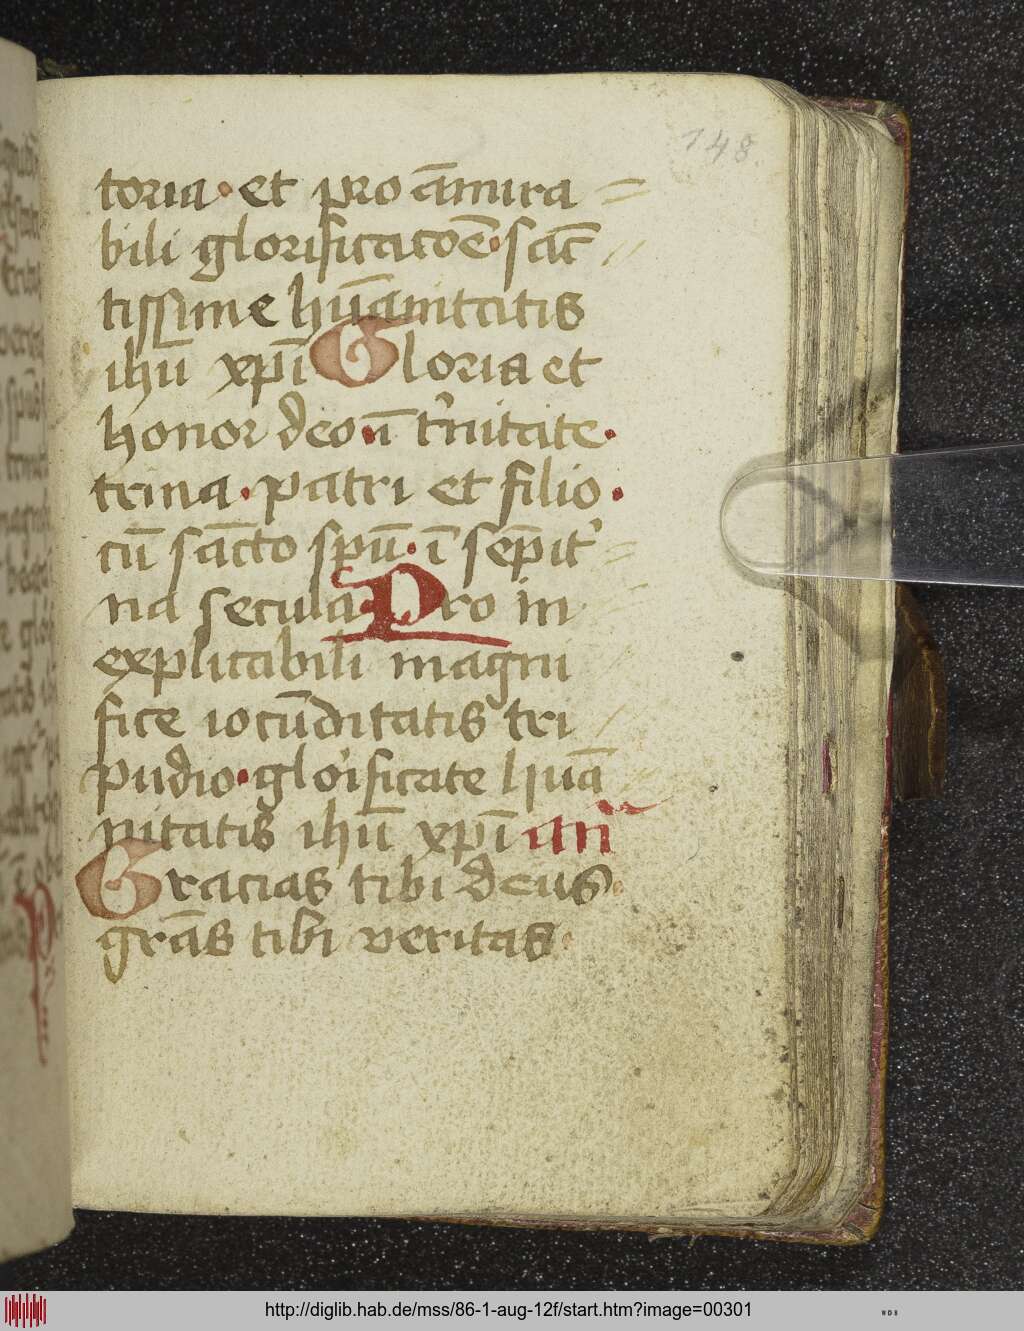 148.
toria · et pro āmira =
bili glorificatōe · sāc //
tissime hūanitatis
ihū xp̄i Gloria et
honor deo · ī t'nitate ·
trina · patri et filio ·
cū sācto spū · ī sēpit' =
na secula · Pro in
explicabili magni //
fice iocūditatis tri //
pudio · glo'ificate huā //
nitatis ihū xp̄i an̄
Gracias tibi deus ·
grās tibi veritas ·
http://diglib.hab.de/mss/86-1-aug-12f/start.htm?image=00301